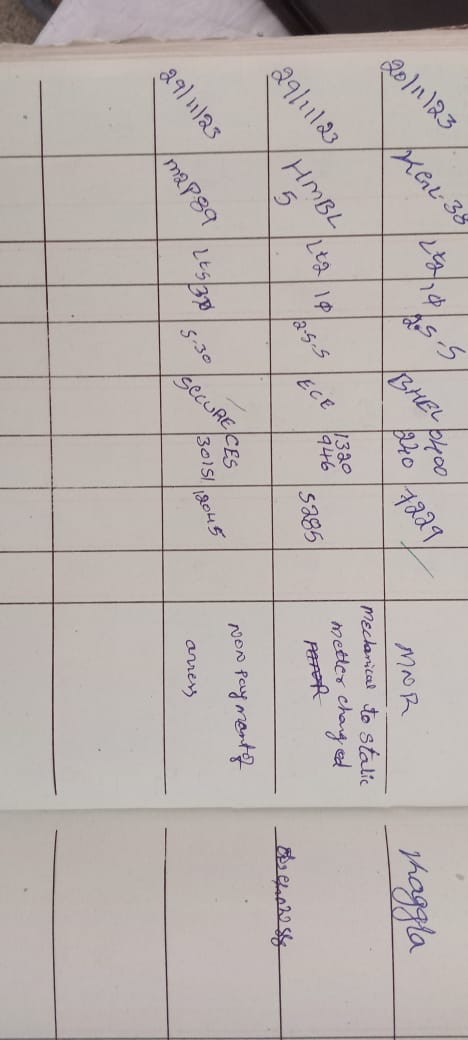 20/11/23 38 Lt2 1Φ 2.5.5 BHEL 0400 240 7229 MNR
29/11/23 HMBL 5 Lt2 1Φ 2.5.5 ECE 1320 946 5285 Mechanical to static metter changed
29/11/23 M2P89 Lt5 3Φ 5.30 SECURE CES 30151 12045 Non payment of arrers